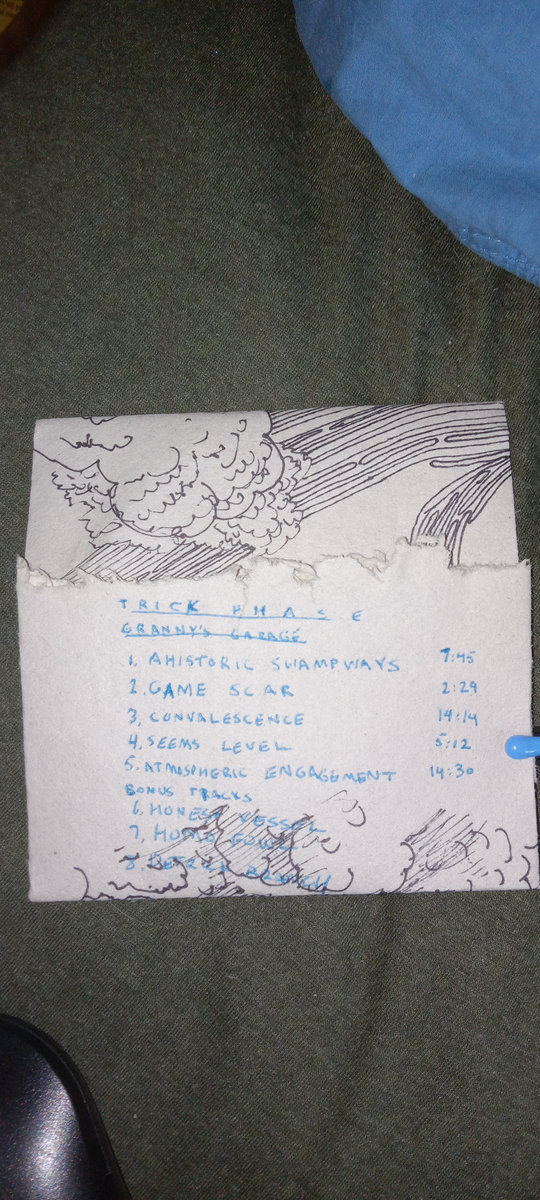 TRICK PHASE
GRANNY'S GARAGE
1. AHISTORIC SWAMPWAYS 7:45
2. GAME SCAR 2:29
3. CONVALESCENCE 14:14
4. SEEMS LEVEL 5:12
5. ATMOSPHERIC ENGAGEMENT 14:30
BONUS TRACKS
6. HONEST VESSEL
7.
8.